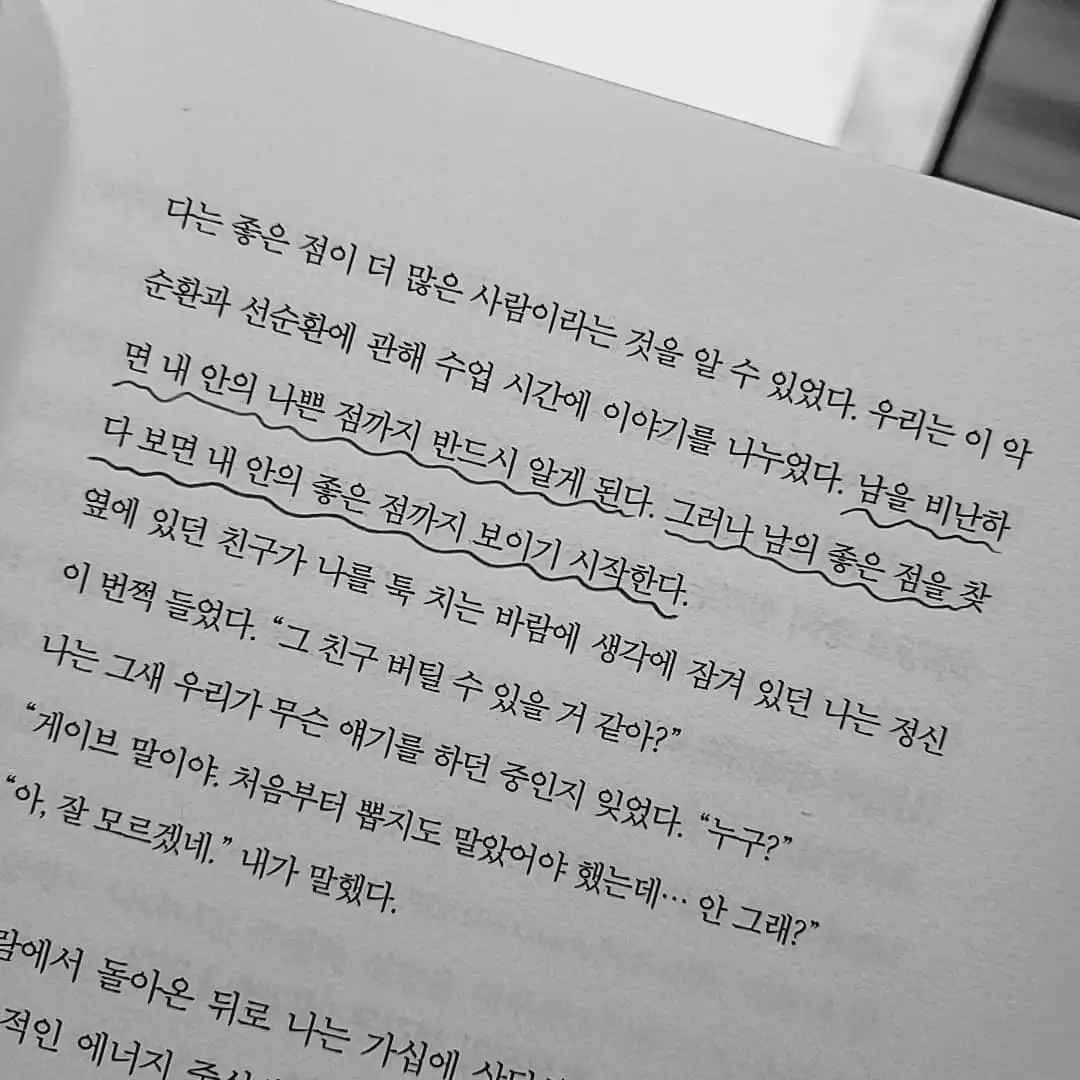 다는 좋은 점이 더 많은 사람이라는 것을 알 수 있었다. 우리는 이 악
순환과 선순환에 관해 수업 시간에 이야기를 나누었다. 남을 비난하
면 내 안의 나쁜 점까지 반드시 알게 된다. 그러나 남의 좋은 점을 찾
다 보면 내 안의 좋은 점까지 보이기 시작한다.
옆에 있던 친구가 나를 툭 치는 바람에 생각에 잠겨 있던 나는 정신
이 번쩍 들었다. “그 친구 버틸 수 있을 거 같아?”
나는 그새 우리가 무슨 얘기를 하던 중인지 잊었다. “누구?”
“게이브 말이야. 처음부터 뽑지도 말았어야 했는데… 안 그래?”
“아, 잘 모르겠네.” 내가 말했다.
람에서 돌아온 뒤로 나는 가십에
적인 에너지